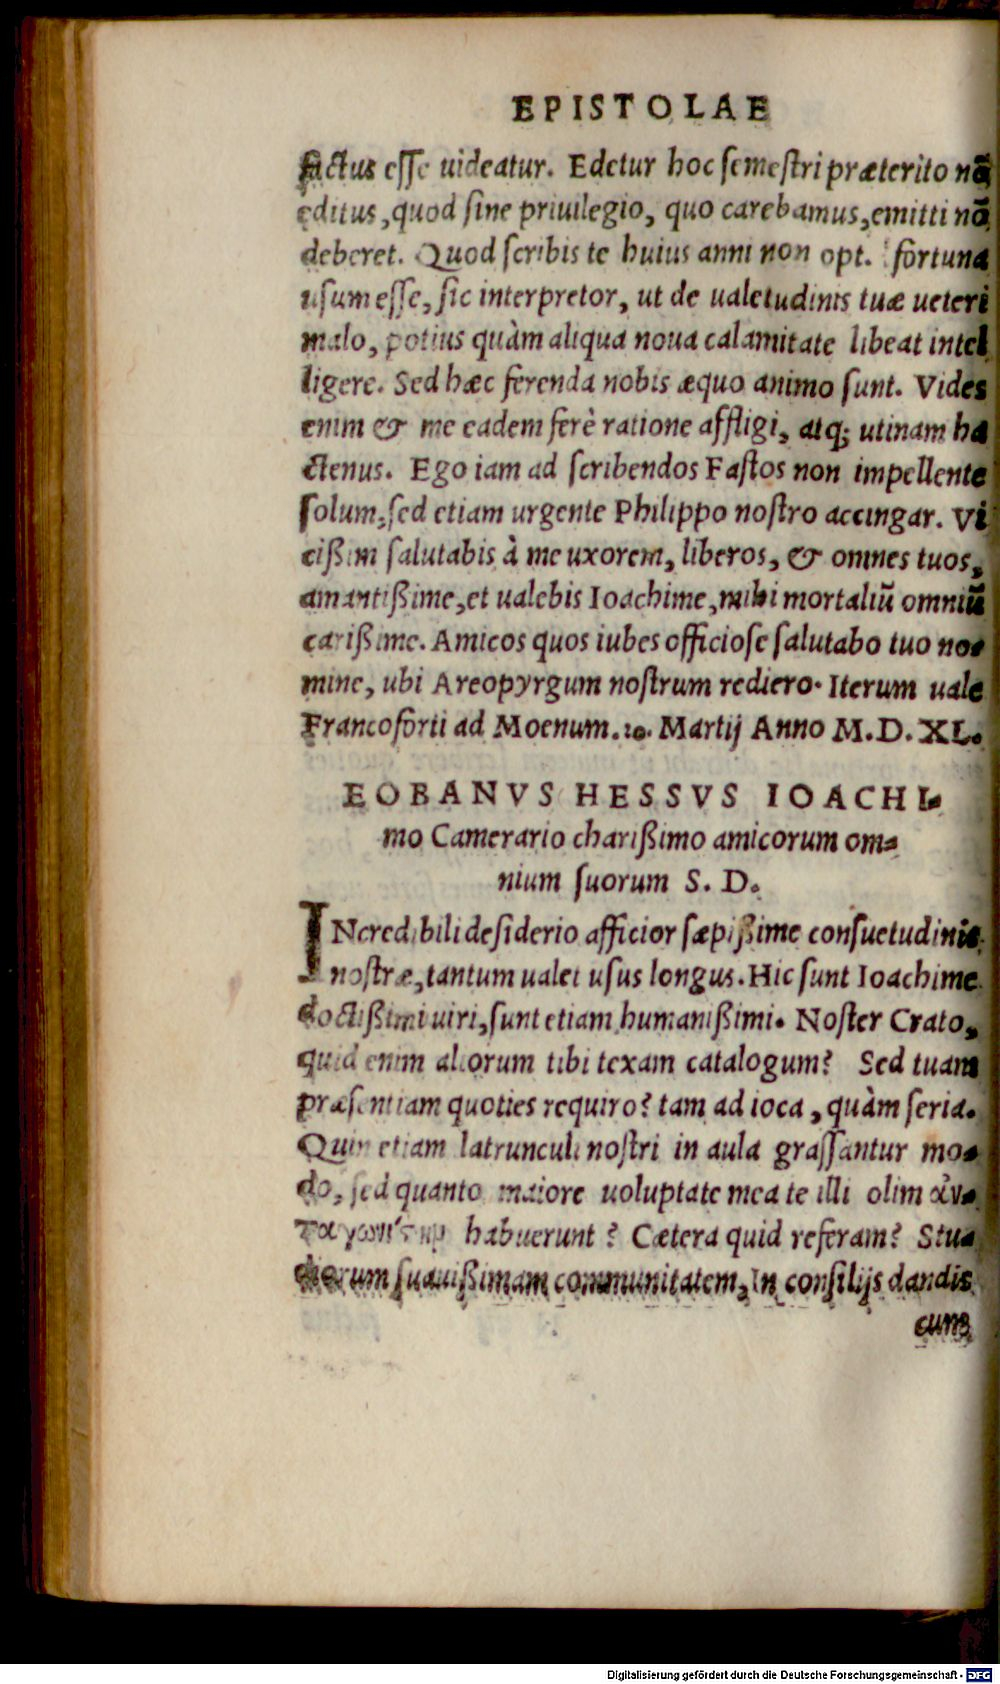 EPISTOLAE
factus esse uideatur. Edetur hoc semestri præterito nõ
editus, quod sine priuilegio, quo carebamus, emitti nõ
deberet. Quod scribis te huius anni non opt. fortuna
usum esse, sic interpretor, ut de ualetudinis tuæ ueteri
malo, potius quàm aliqua noua calamitate libeat intel
ligere. Sed hæc ferenda nobis æquo animo sunt. Vides
enim & me eadem ferè ratione affligi, atq; utinam ha
ctenus. Ego iam ad scribendos Fastos non impellente
solum, sed etiam urgente Philippo nostro accingar. Vi
cißim salutabis à me uxorem, liberos, & omnes tuos,
amantißime, et ualebis Ioachime, mihi mortaliũ omniũ
carißime. Amicos quos iubes officiose salutabo tuo no-
mine, ubi Areopyrgum nostrum rediero. Iterum uale
Francoforti ad Moenum. 20. Martij Anno M. D. XL.
EOBANVS HESSVS IOACHI-
mo Camerario charißimo amicorum om-
nium suorum S. D.
INcredibili desiderio afficior sæpißime consuetudinis
nostræ, tantum ualet usus longus. Hic sunt Ioachime
doctißimi uiri, sunt etiam humanißimi. Noster Crato,
quid enim aliorum tibi texam catalogum? Sed tuam
præsentiam quoties requiro? tam ad ioca, quàm seria.
Quin etiam latrunculi nostri in aula grassantur mo-
do, sed quanto maiore uoluptate mea te illi olim ἀν-
habuerunt? Cætera quid referam? Stu-
diorum suauißimam communitatem, In consilijs dandis
cum
Digitalisierung gefördert durch die Deutsche Forschungsgemeinschaft - DFG